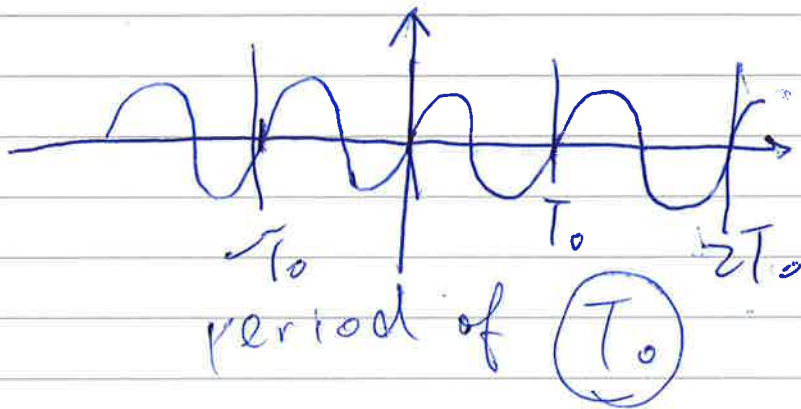 -T₀ T₀ 2T₀
period of T₀